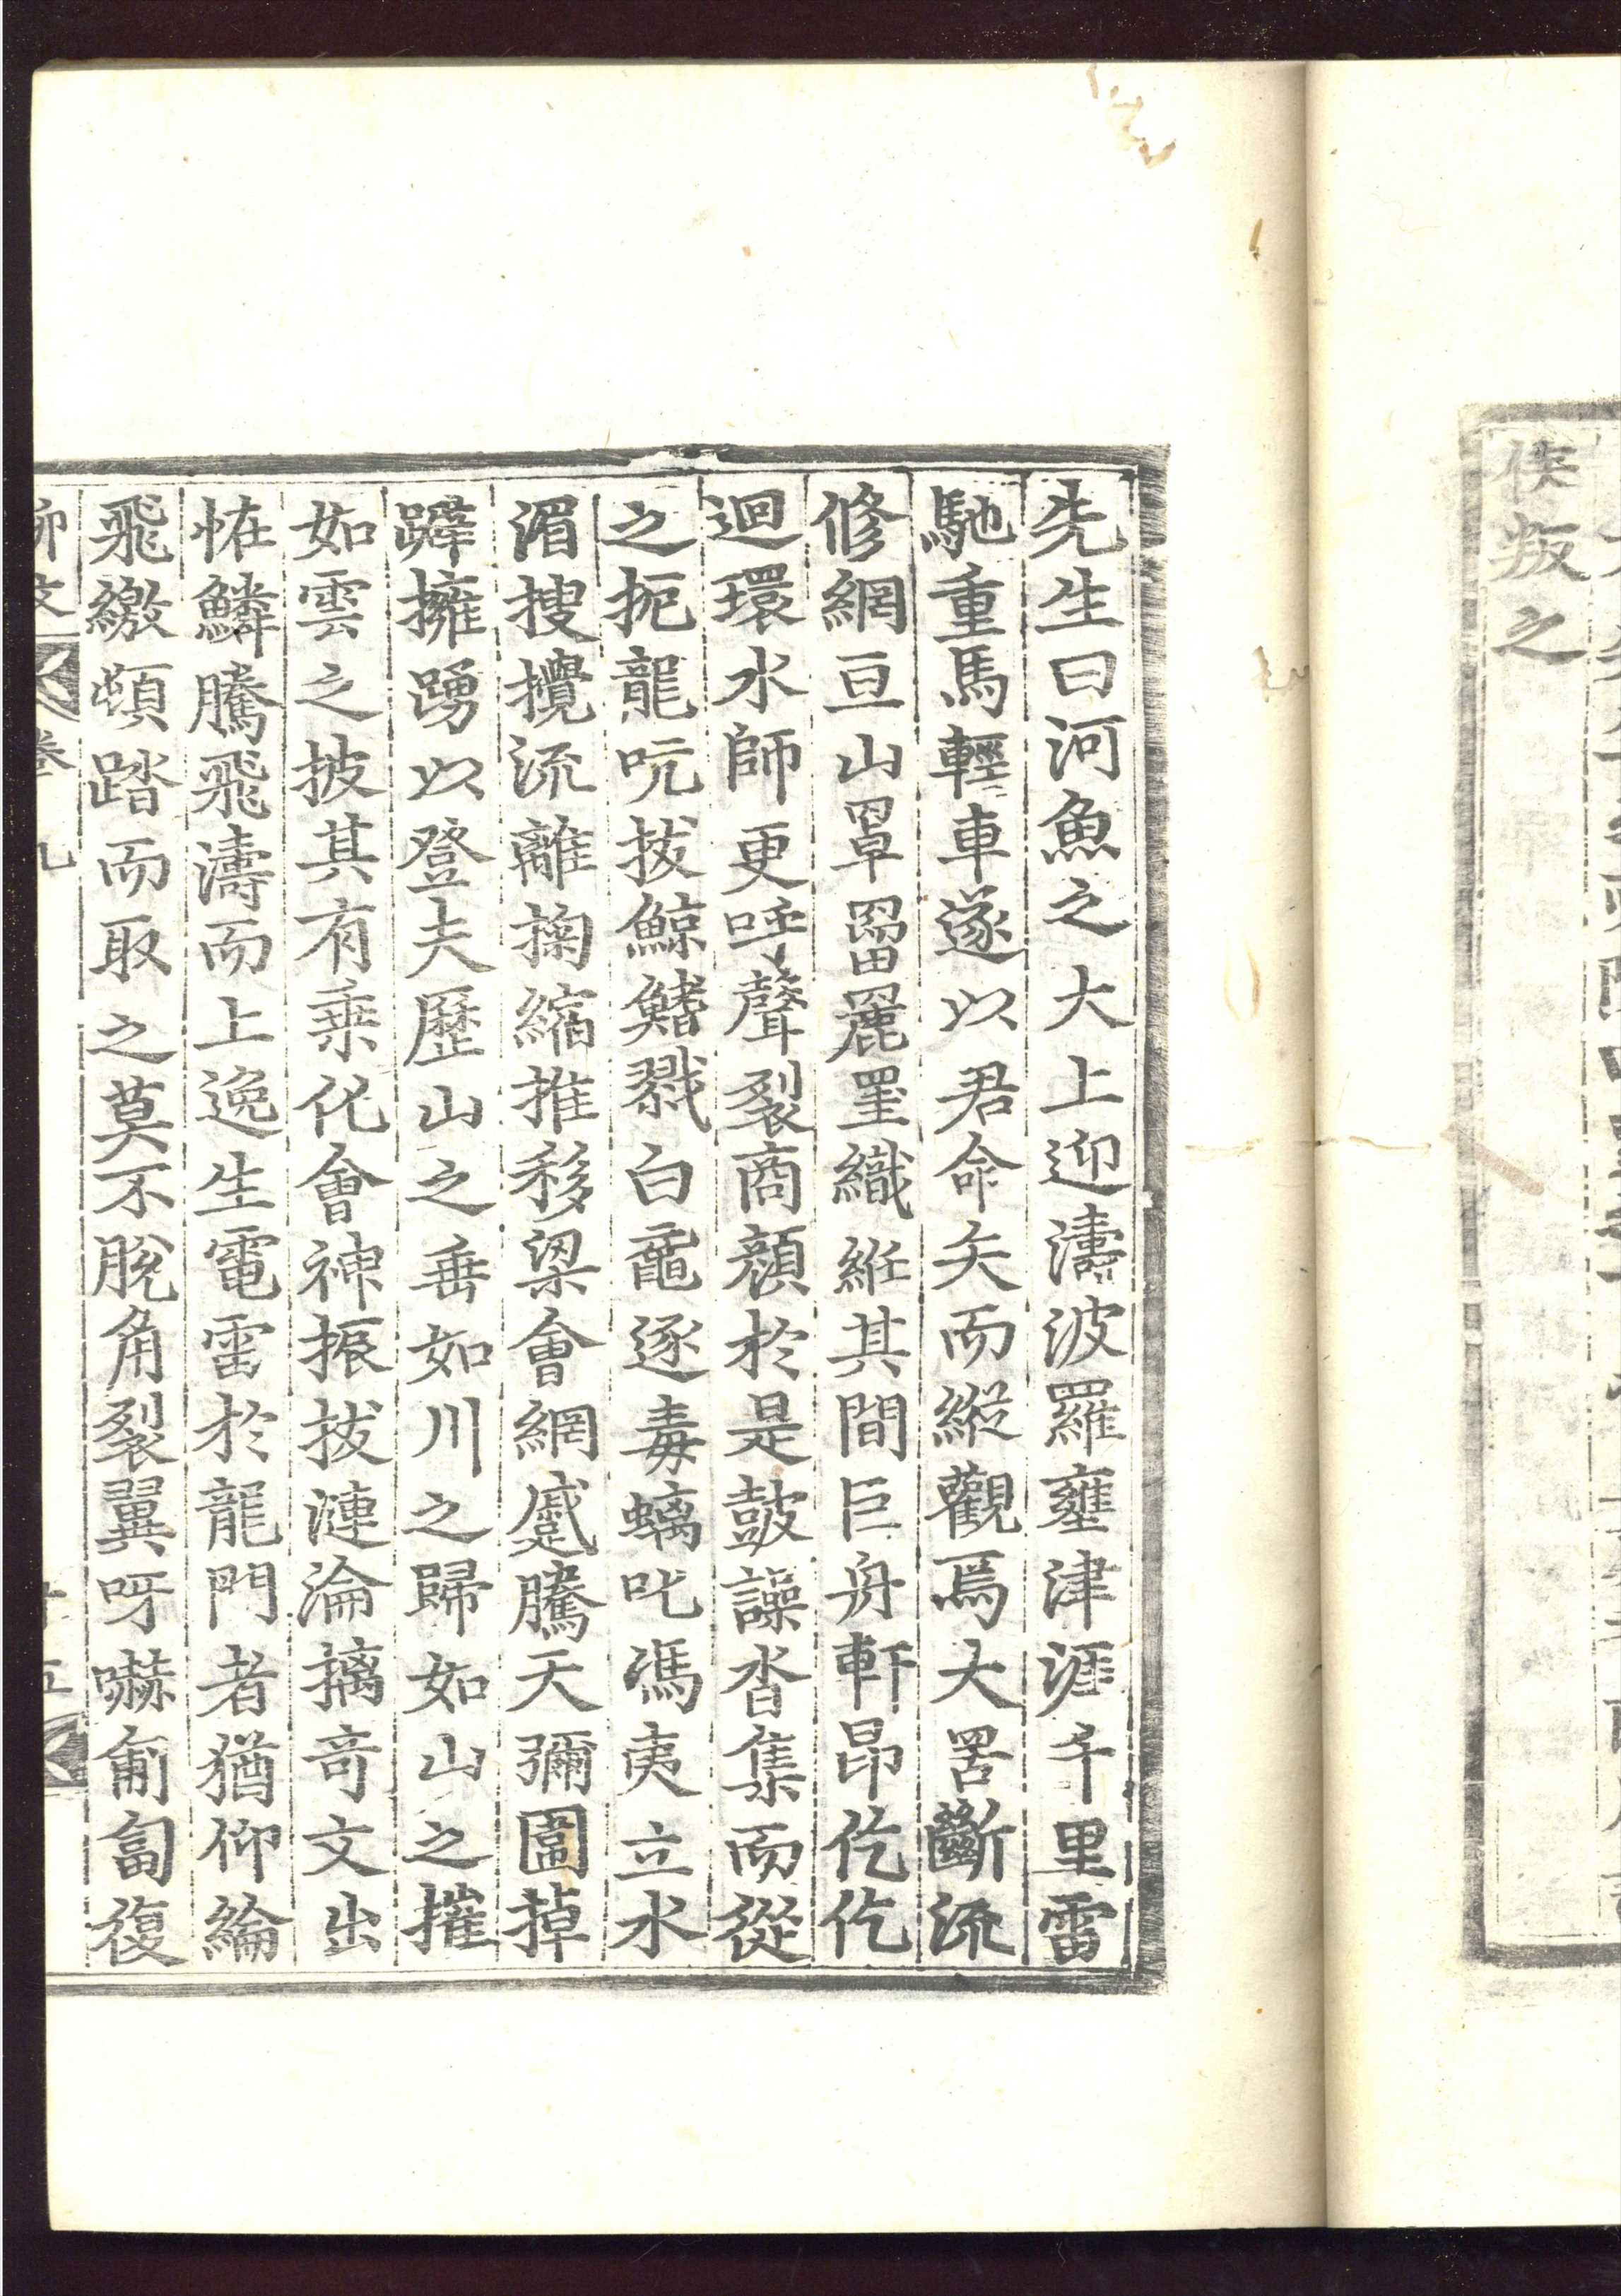 侯叛之
先生曰河魚之大上迎濤波羅壅津涯千里雷
馳重馬輕車遂以君命矢而縱觀焉大罟斷流
修網亘山罩罶麗罣織絍其間巨舟軒昂仡仡
迴環水師更呼聲裂商顔於是鼓譟沓集而從
之扼龍吭拔鯨鰭戮白黿逐毒螭叱馮夷立水
湄搜攪流離掬縮推移梁會網蹙騰天彌圍掉
躃擁踴以登夫歷山之垂如川之歸如山之摧
如雲之披其有乗化會神振拔漣淪摛竒文出
恠鱗騰飛濤而上逸生電雷於龍門者猶仰綸
飛繳頓踏而取之莫不脫角裂翼呀嚇匍匐復
卷九